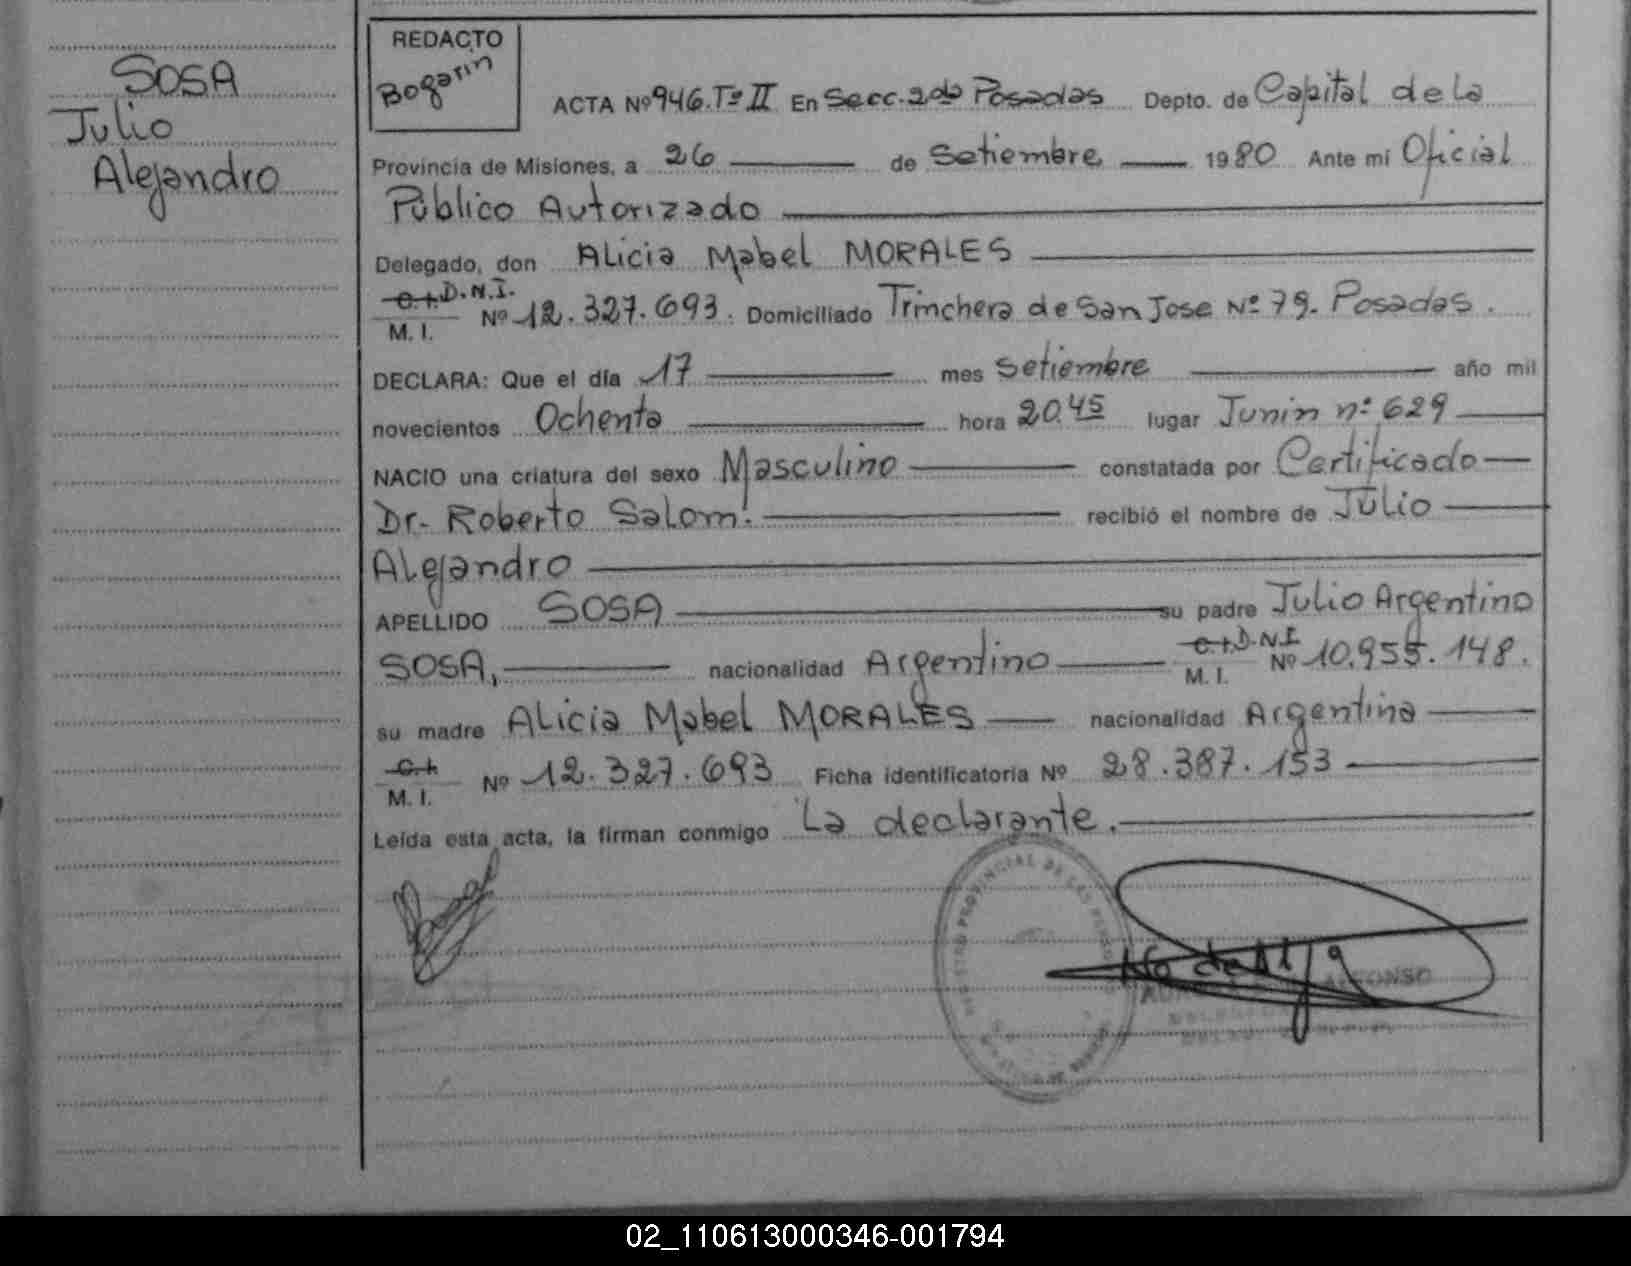 SOSA
Julio
Alejandro
REDACTO
Bogarin
ACTA Nº 946. Tº II En Secc. 2da Posadas Depto. de Capital de la
Provincia de Misiones, a 26 de Setiembre 1980 Ante mi Oficial
Público Autorizado
Delegado, don Alicia Mabel MORALES
C.I. D.N.I.
M. I. Nº 12.327.693. Domiciliado Trinchera de San Jose Nº 79. Posadas.
DECLARA: Que el día 17 mes Setiembre año mil
novecientos Ochenta hora 20.45 lugar Junin nº 629
NACIO una criatura del sexo Masculino constatada por Certificado
Dr. Roberto Salom. recibió el nombre de Julio
Alejandro
APELLIDO SOSA su padre Julio Argentino
SOSA, nacionalidad Argentino C.I. D.N.I. M. I. Nº 10.955.148.
su madre Alicia Mabel MORALES nacionalidad Argentina
C.I. M. I. Nº 12.327.693 Ficha identificatoria Nº 28.387.153
Leída esta acta, la firman conmigo La declarante.
REGISTRO PROVINCIAL DE LAS PERSONAS
02_110613000346-001794